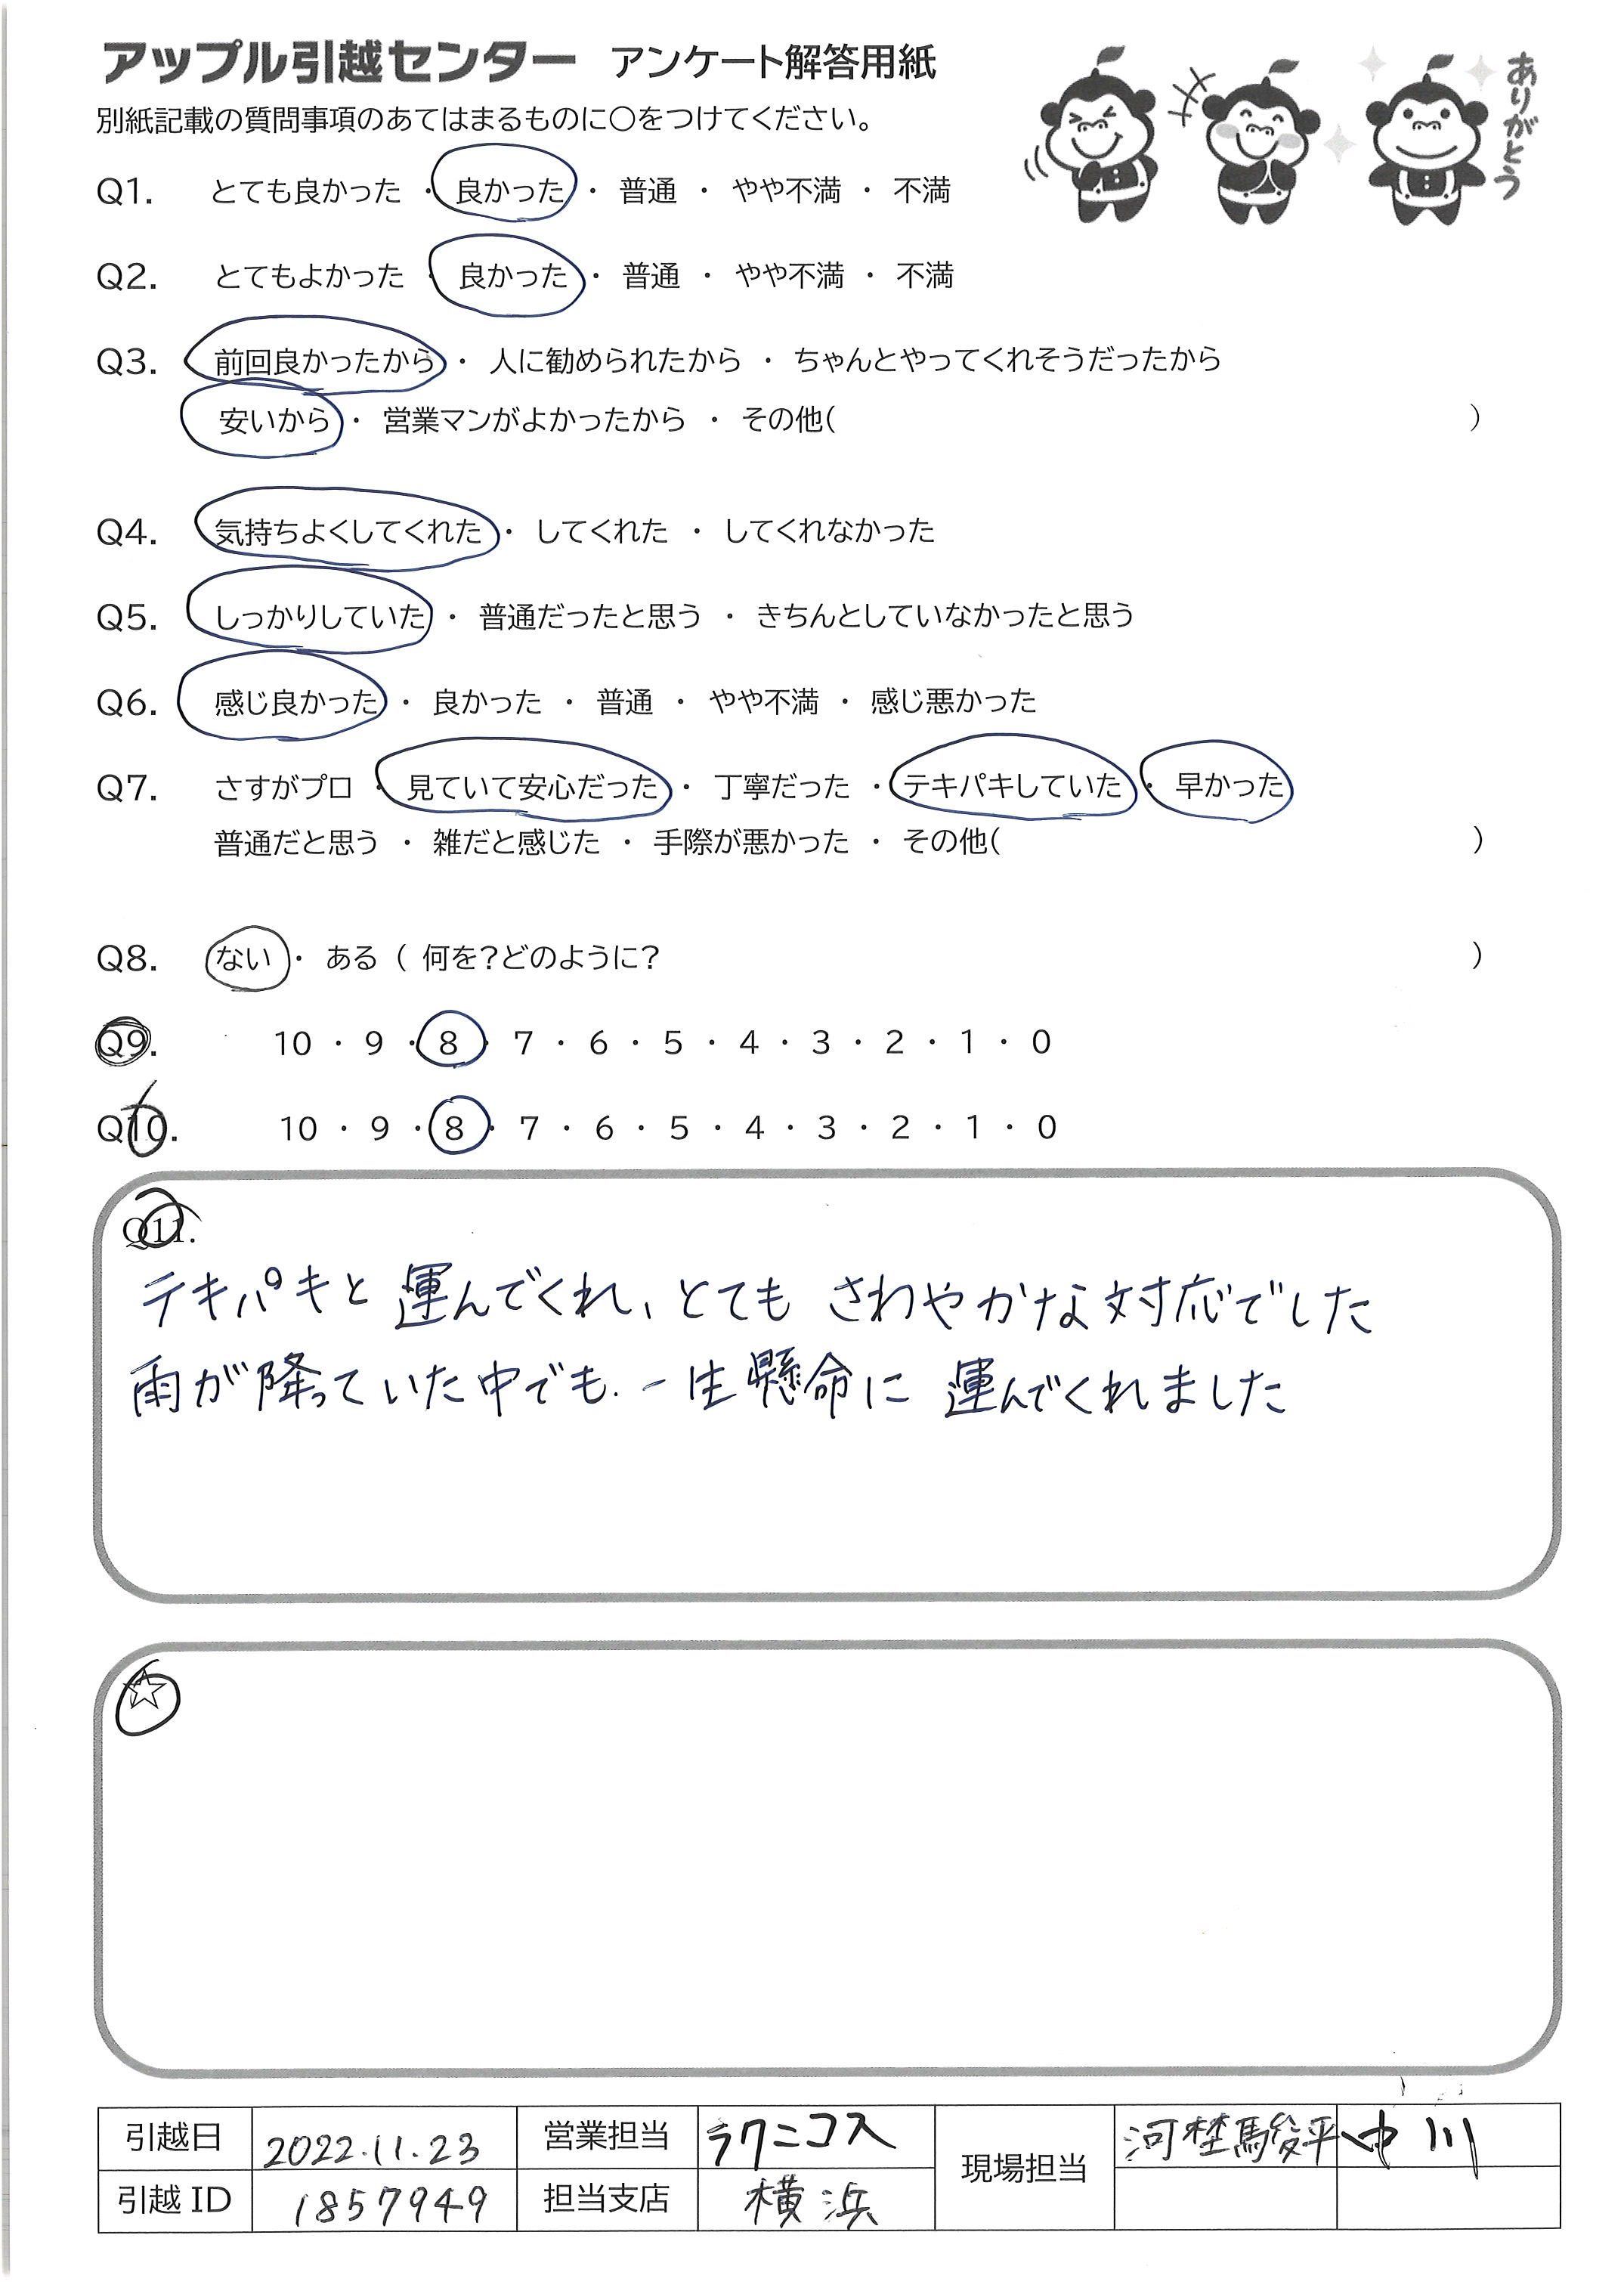 アップル引越センター アンケート解答用紙
ありがとう
別紙記載の質問事項のあてはまるものに〇をつけてください。
Q1. とても良かった ・ 良かった ・ 普通 ・ やや不満 ・ 不満
Q2. とてもよかった ・ 良かった ・ 普通 ・ やや不満 ・ 不満
Q3. 前回良かったから ・ 人に勧められたから ・ ちゃんとやってくれそうだったから
安いから ・ 営業マンがよかったから ・ その他( )
Q4. 気持ちよくしてくれた ・ してくれた ・ してくれなかった
Q5. しっかりしていた ・ 普通だったと思う ・ きちんとしていなかったと思う
Q6. 感じ良かった ・ 良かった ・ 普通 ・ やや不満 ・ 感じ悪かった
Q7. さすがプロ ・ 見ていて安心だった ・ 丁寧だった ・ テキパキしていた ・ 早かった
普通だと思う ・ 雑だと感じた ・ 手際が悪かった ・ その他( )
Q8. ない ・ ある ( 何を?どのように? )
Q9. 10 ・ 9 ・ 8 ・ 7 ・ 6 ・ 5 ・ 4 ・ 3 ・ 2 ・ 1 ・ 0
Q10. 10 ・ 9 ・ 8 ・ 7 ・ 6 ・ 5 ・ 4 ・ 3 ・ 2 ・ 1 ・ 0
Q11.
テキパキと運んでくれ、とても さわやかな対応でした
雨が降っていた中でも、一生懸命に 運んでくれました
☆
引越日 2022.11.23 営業担当 ラクニコス 現場担当 俊平 中川
引越 ID 1857949 担当支店 横浜